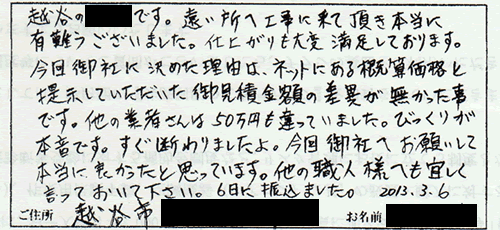 越谷の です。遠い所へ工事に来て頂き本当に
有難うございました。仕上がりも大変満足しております。
今回御社に決めた理由は、ネットにある概算価格と
提示していただいた御見積金額の差異が無かった事
です。他の業者さんは50万円も違っていました。びっくりが
本音です。すぐ断わりましたよ。今回御社へお願いして
本当に良かったと思っています。他の職人様へも宜しく
言っておいて下さい。6日に振込ました。 2013.3.6
ご住所 越谷市 お名前